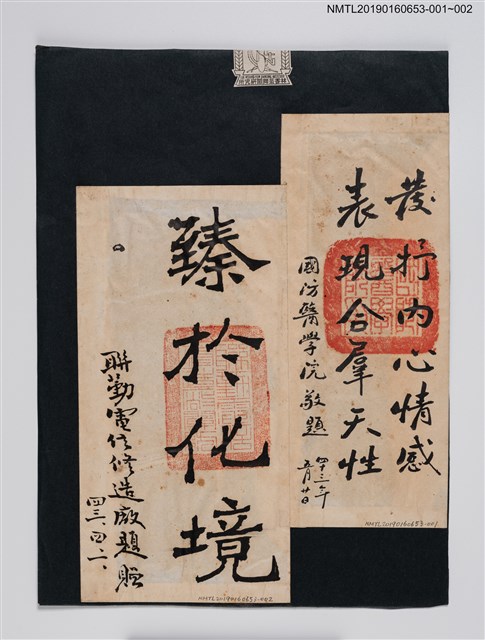 NMTL20190160653-001~002
發抒内心情感
表現合羣天性
國防醫學院敬題
四十三年
五月廿日
NMTL20190160653-001
臻於化境
聯勤電信修造廠題贈
四三、四、二、
NMTL20190160653-002